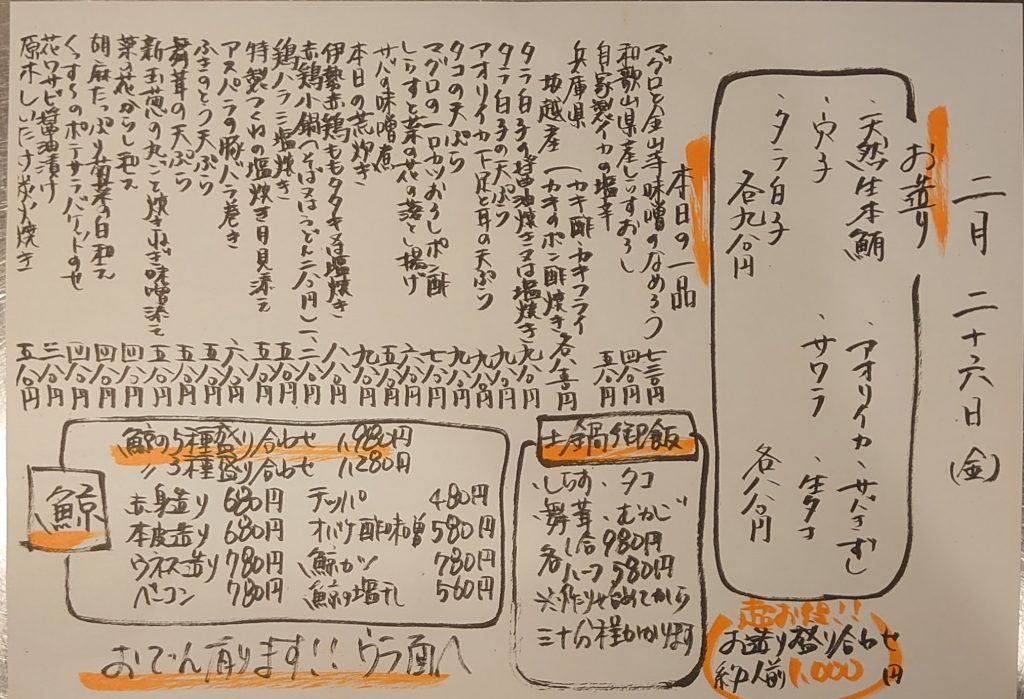 二月二十六日(金)
お造り
・天然生本鮪
・アオリイカ
・サバきずし
・穴子
・サワラ
・生タコ
・タラ白子
各九八〇円
各八八〇円
超お得!!
お造り盛り合わせ
約1人前1,000円
本日の一品
マグロと金山寺味噌のなめろう 七三〇円
和歌山県産しらすおろし 四八〇円
自家製イカの塩辛 五八〇円
兵庫県
坂越産
(カキ酢・カキフライ
(カキのポン酢焼き 各八八〇円
タラ白子の醤油焼き又は塩焼き 九八〇円
タラ白子の天ぷら 九八〇円
アオリイカ下足と耳の天ぷら 九八〇円
タコの天ぷら 九八〇円
マグロの一口カツおろしポン酢 七八〇円
しらすと菜の花の落とし揚げ 六八〇円
サバの味噌煮 九八〇円
本日の荒炊き 九八〇円
伊勢赤鶏ももタタキ又は塩焼き 八八〇円
赤鶏小鍋(そば又はうどん二八〇円) 一、二八〇円
鶏ハラミ塩焼き 五八〇円
特製つくねの塩焼き月見添え 五八〇円
アスパラの豚バラ巻き 六八〇円
ふきのとう天ぷら 五八〇円
舞茸の天ぷら 五八〇円
新玉葱の丸ごと焼きねぎ味噌添え 五八〇円
菜の花からし和え 四八〇円
胡麻たっぷり菊菜の白和え 四八〇円
くんすみのポテサラバケットのせ 四八〇円
花ワサビ醤油漬け 三八〇円
原木しいたけ炭火焼き 五八〇円
土鍋御飯
・しらす・タコ
・舞茸・むかご
各一合980円
ハーフ580円
※作り始めてから
三十分程かかります
鯨
鯨の5種盛り合わせ 1,980円
〃3種盛り合わせ 1,280円
赤身造り 680円
本皮造り 680円
ウネス造り 780円
ベーコン 780円
テッパ 480円
オバケ酢味噌 580円
鯨カツ 780円
鯨の塩干し 560円
おでん有ります!!ウラ面へ